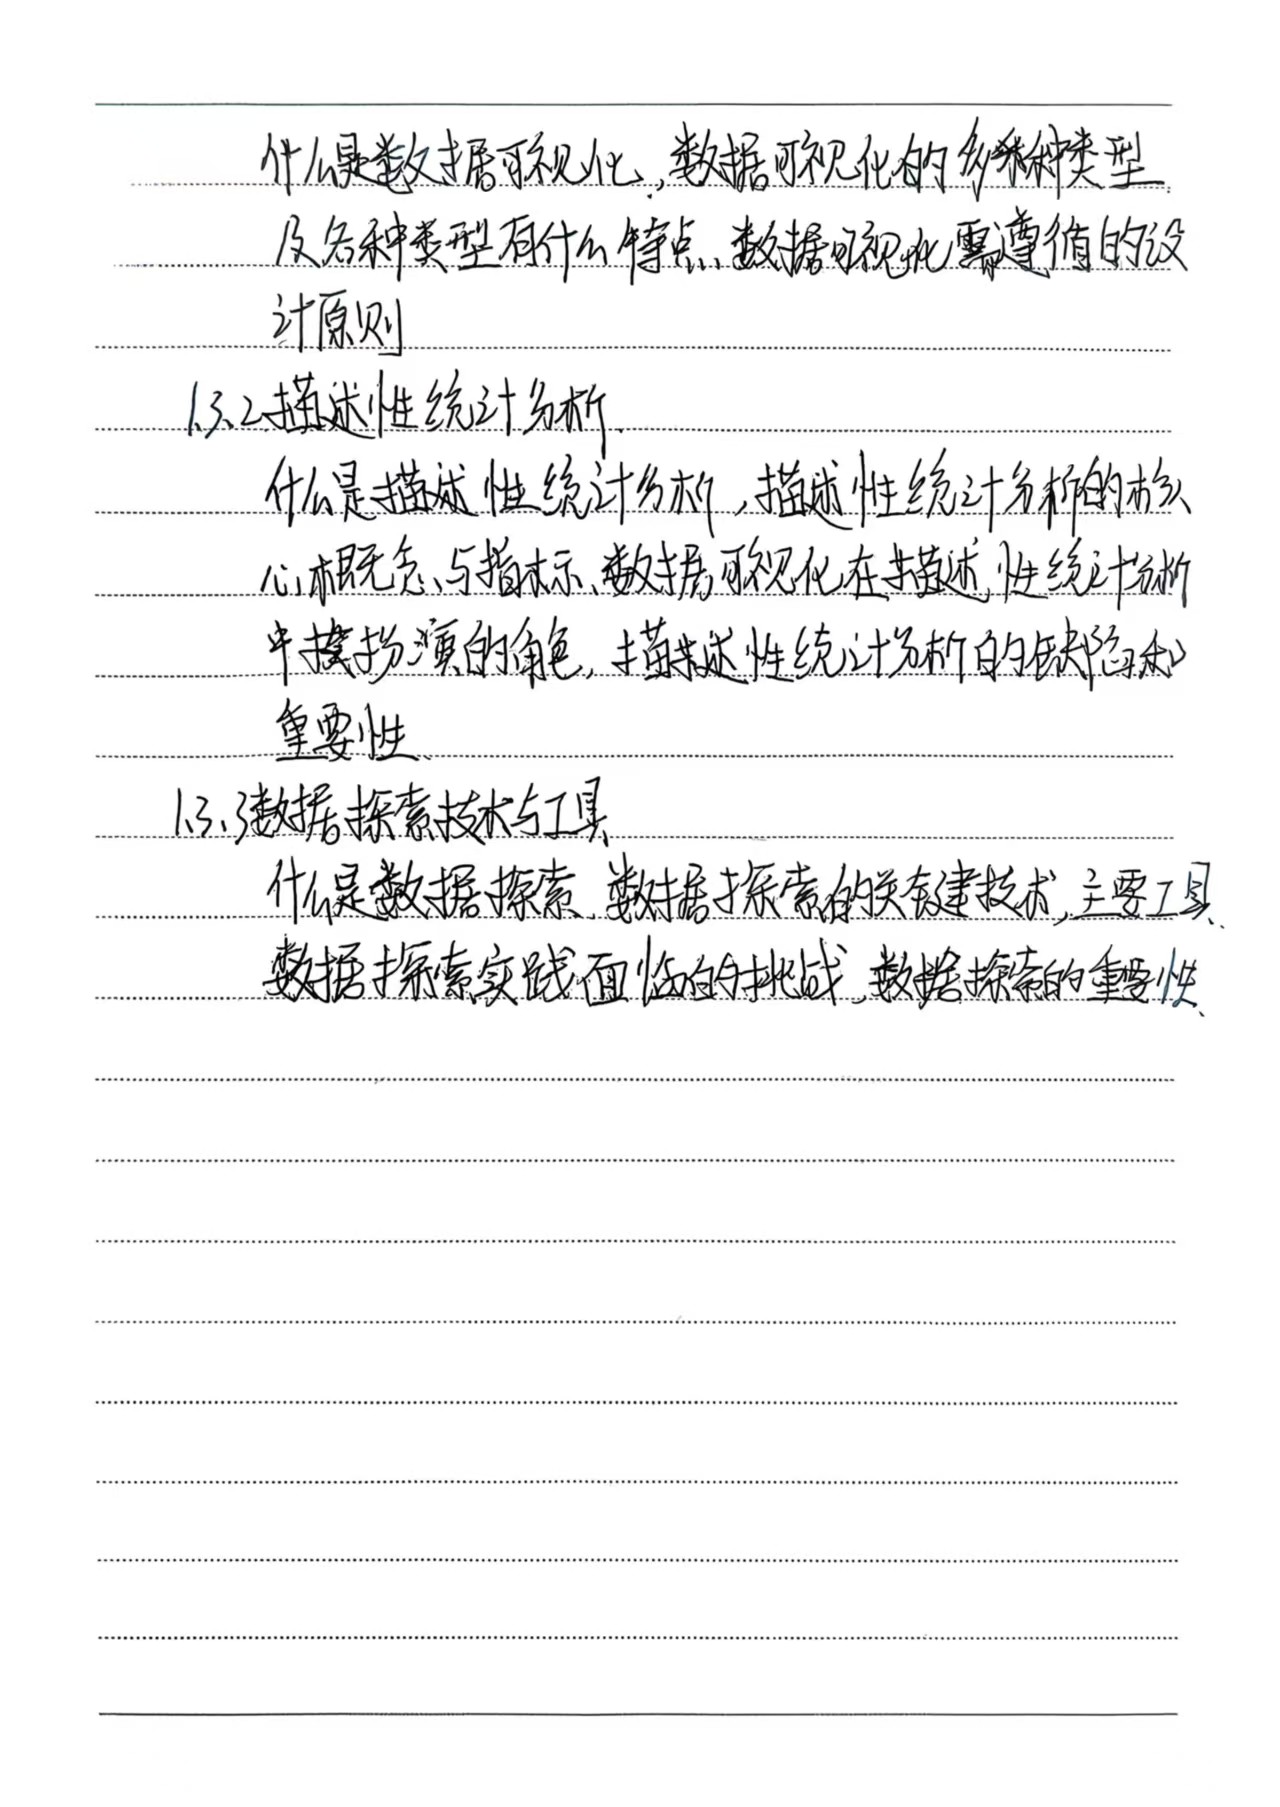 什么是数据可视化、数据可视化的多种类型
及各种类型有什么特点、数据可视化需遵循的设
计原则
1.3.2.描述性统计分析.
什么是描述性统计分析，描述性统计分析的核
心概念、与指标、数据可视化在描述性统计分析
中扮演的角色，描述性统计分析的缺陷和
重要性、
1.3.3数据探索技术与工具
什么是数据探索、数据探索的关键技术，主要工具、
数据探索实践面临的挑战，数据探索的重要性、